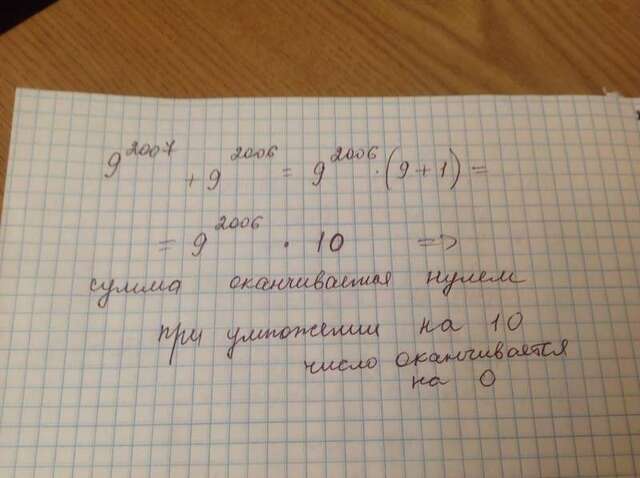 9²⁰⁰⁷ + 9²⁰⁰⁶ = 9²⁰⁰⁶ · (9 + 1) =
= 9²⁰⁰⁶ · 10 =>
сумма оканчивается нулем
при умножении на 10
число оканчивается
на 0